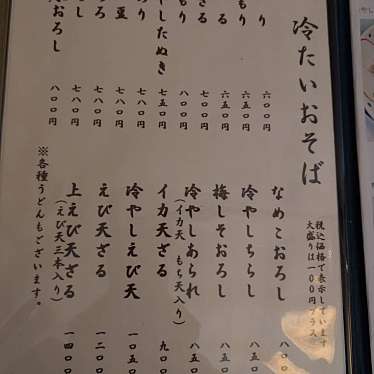 冷たいおそば
税込価格で表示しています
大盛りは一〇〇円プラス
り 六〇〇円
もり 六五〇円
ざる 六五〇円
る 七〇〇円
もり 八〇〇円
やしたぬき 七五〇円
り
豆
ろ 七八〇円
し 七八〇円
おろし 八〇〇円
なめこおろし 八〇〇
冷やしちらし 八五〇
梅しそおろし 八五〇
冷やしあられ 八五〇
(イカ天、もち天入り)
イカ天ざる 九〇〇
冷やしえび天 一〇五〇
えび天ざる 一二〇〇
上えび天ざる 一四〇〇
(えび天三本入り)
※各種うどんもございます。